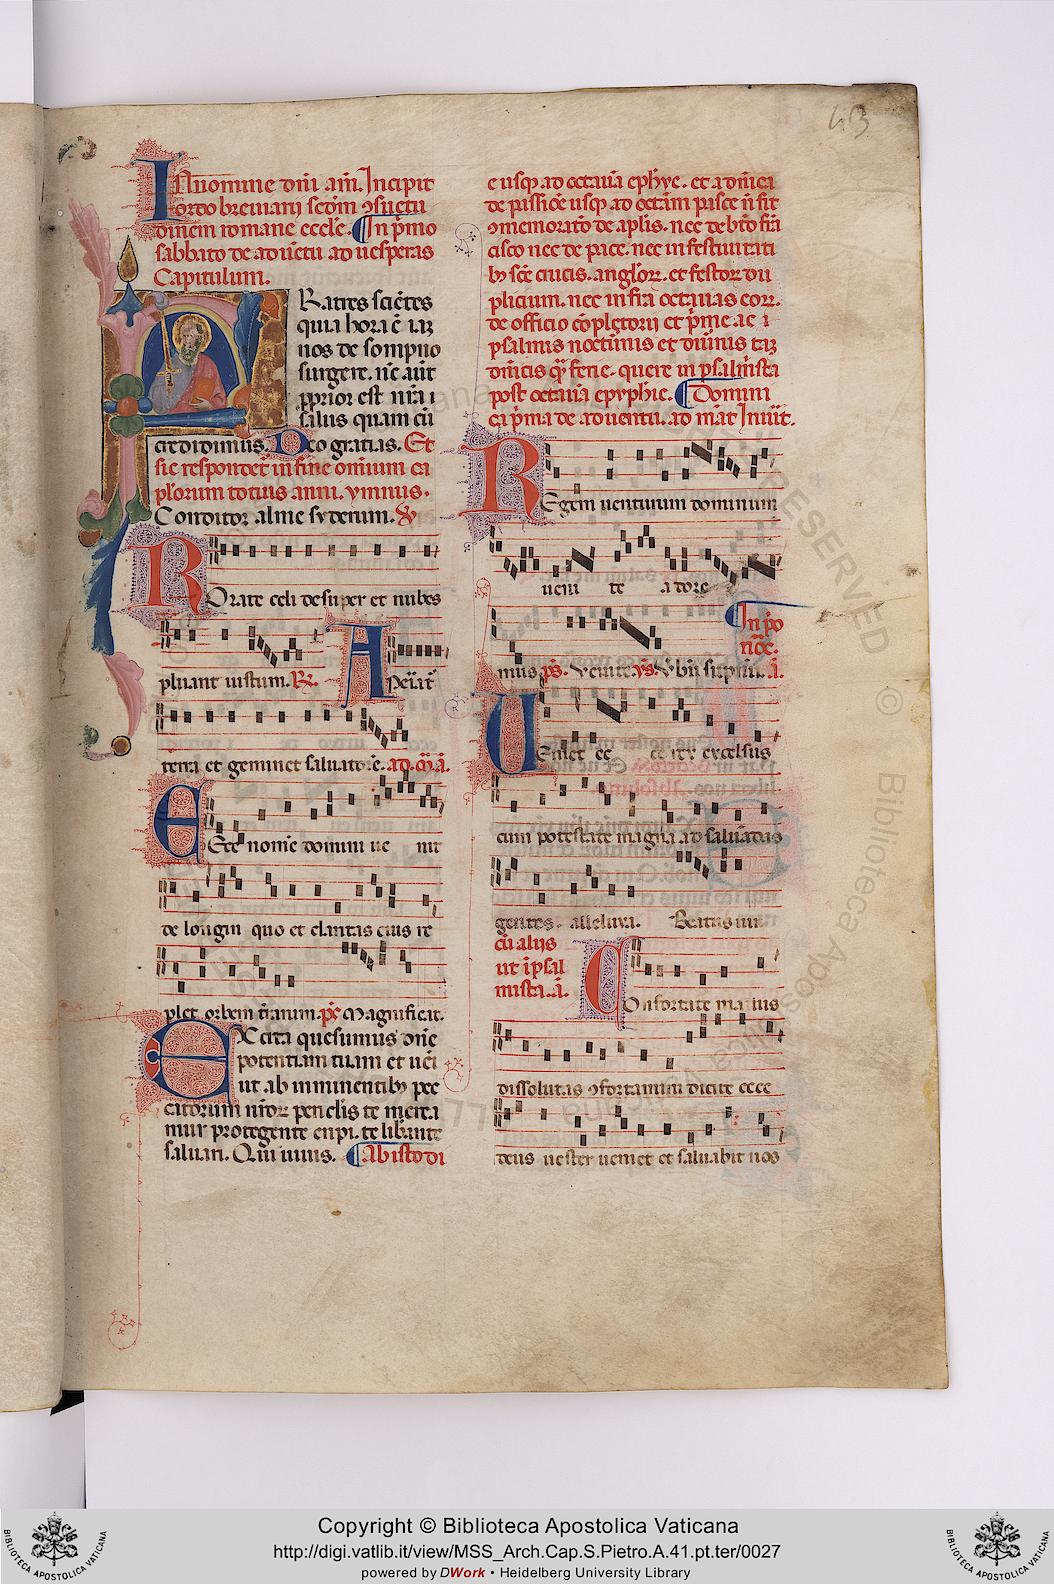 43
In nomine dñi am̃. Incipit
ordo breuiarij scd̃m ↄsuetu
dinem romane eccl̃e. In p̃mo
sabbato de aduẽtu ad uesperas
Capitulum.
Fratres sciẽtes
quia hora ẽ iaꝫ
nos de sompno
surgere. nc̃ aũt
ppior est nr̃a
salus quam cũ
credidimus. Deo gratias. Et
sic respondet in fine omĩum ca
plorum totius anni. ymnus.
Conditor alme syderum. ℣
Rorate celi desuper et nubes
pluant iustum. ℟. Apeĩat
terra et geminet saluatorẽ. ad. m̃. a.
Ecce nomẽ domini ue nit
de longin quo et claritas eius re
plet orbem t̃rarum. p̃s Magnificat.
Excita quesumus dñe
potentiam tuam et ueni
ut ab imminentibꝫ pec
catorum nr̃oꝝ periclis te merea
mur protegente eripi. te libãnte
saluari. Qui uiuis. Ab isto di
e usqꝫ ad octauã ephye. et a dñica
de passiõe usqꝫ ad octãm pasce ñ fit
ↄmemoratõ de aplis. nec de bt̃o frã
cisco nec de pace. nec in festiuitati
bꝫ scẽ crucis. angloꝝ. et festoꝝ du
plicium. nec infra octauas eoꝝ.
de officio cõpletorij et p̃me ac
psalmis nocturnis et diurnis taꝫ
dñicis q̃ ferie. quere in psalmista
post octauã epyphie. Domini
ca p̃ma de aduentu. ad mat̃ Inuit̃.
Regem uenturum dominum
ueni te adore
In p̃o
noc̃te.
mus p̃s. Venite. ys. Verbũ supnũ. a.
Veniet ec ce rex excelsus
cum potestate magna ad saluãdas
gentes. alleluya. Beatus uir
cũ alijs
ut ĩ psal
mista. a.
Confortate manus
dissolutas ↄfortamini dicite ecce
deus uester ueniet et saluabit nos
Copyright © Biblioteca Apostolica Vaticana
http://digi.vatlib.it/view/MSS_Arch.Cap.S.Pietro.A.41.pt.ter/0027
powered by DWork • Heidelberg University Library
BIBLIOTECA APOSTOLICA VATICANA
BIBLIOTECA APOSTOLICA VATICANA